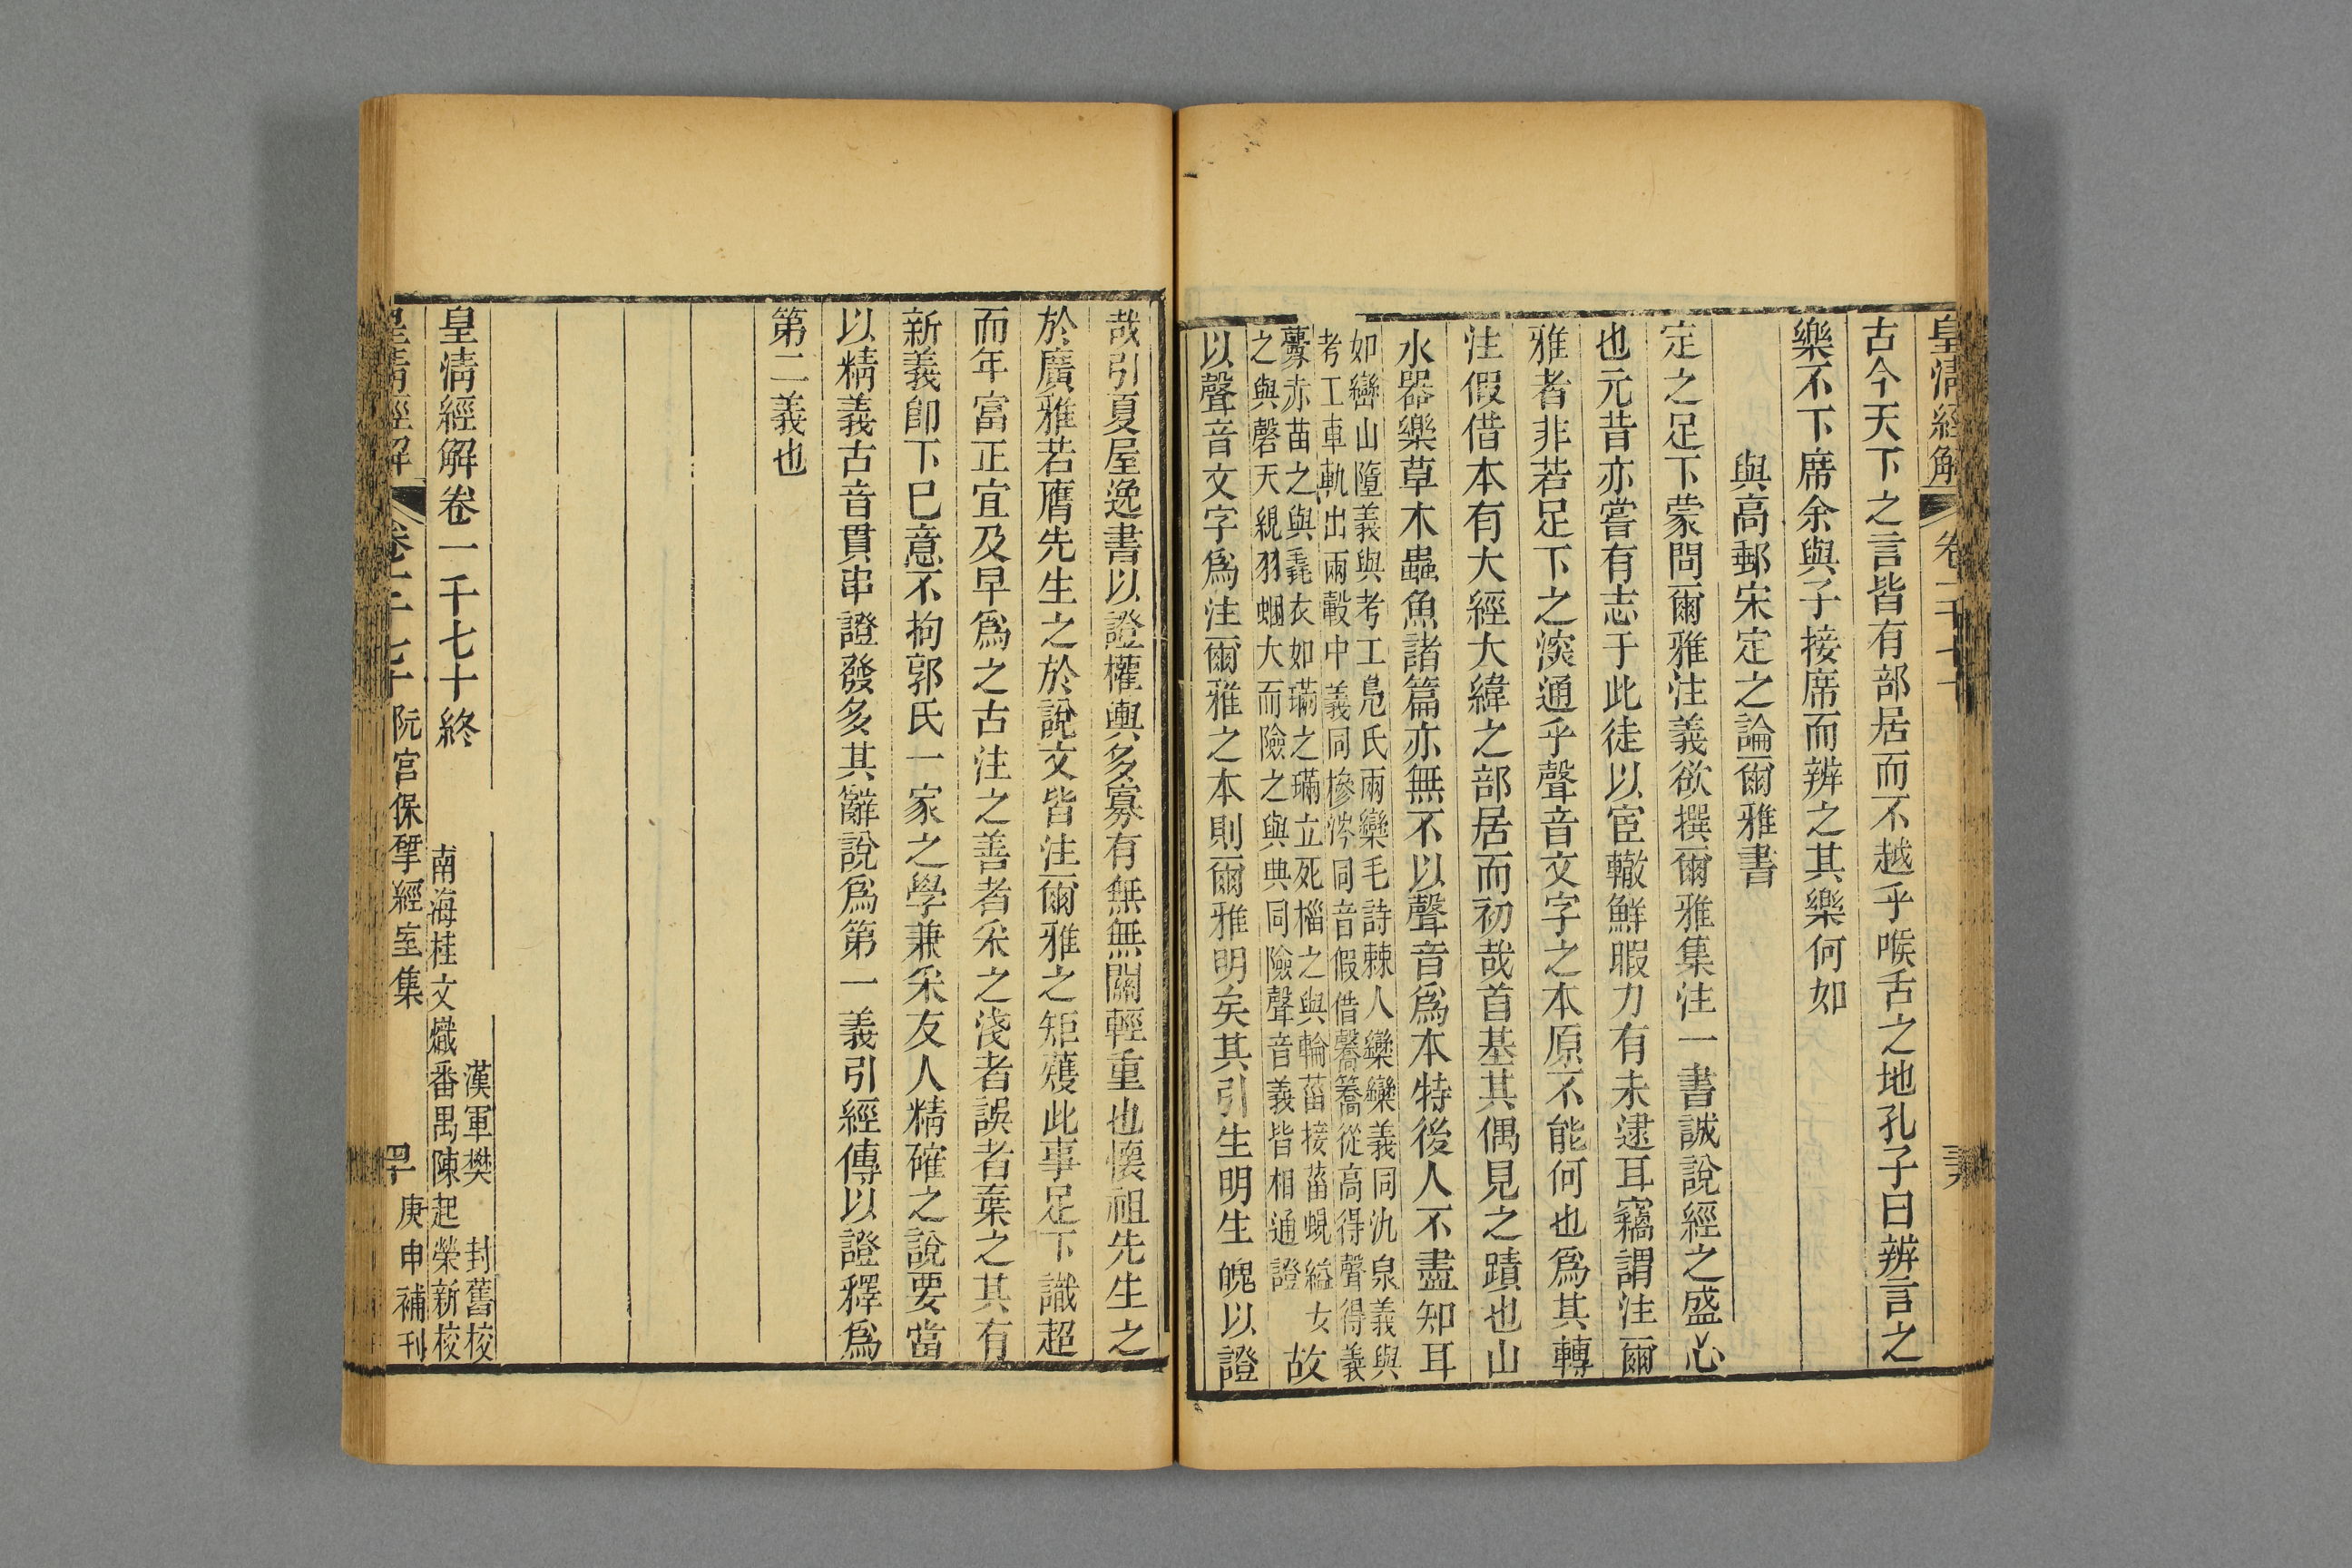 皇清經解 卷一千七十
古今天下之言皆有部居而不越乎喉舌之地孔子曰辨言之
樂不下席余與子接席而辨之其樂何如
與高郵宋定之論爾雅書
定之足下蒙問爾雅注義欲撰爾雅集注一書誠說經之盛心
也元昔亦嘗有志于此徒以宦轍鮮暇力有未逮耳竊謂注爾
雅者非若足下之深通乎聲音文字之本原不能何也爲其轉
注假借本有大經大緯之部居而初哉首基其偶見之蹟也山
水器樂草木蟲魚諸篇亦無不以聲音爲本特後人不盡知耳
如巒山隨義與考工鳧氏兩欒毛詩棘人欒欒義同氿泉義與
考工車軌出兩轂中義同槮涔同音假借鷮簥從高得聲得義
虋亦苗之與毳衣如璊之璊立死椔之與輪菑接菑蜆縊女
之與磬天緄羽蜠大而險之與典同險聲音義皆相通證
故
以聲音文字爲注爾雅之本則爾雅明矣其引生明生魄以證
哉引夏屋逸書以證權輿多寡有無無關輕重也懷祖先生之
於廣雅若膺先生之於說文皆注爾雅之矩矱此事足下識超
而年富正宜及早爲之古注之善者采之淺者誤者棄之其有
新義卽下己意不拘郭氏一家之學兼采友人精確之說要當
以精義古音貫串證發多其辭說爲第一義引經傳以證釋爲
第二義也
漢軍樊封舊校
南海桂文熾番禺陳起榮新校
皇清經解卷一千七十終
皇清經解 卷一千七十 阮宮保揅經室集 罕 庚申補刊